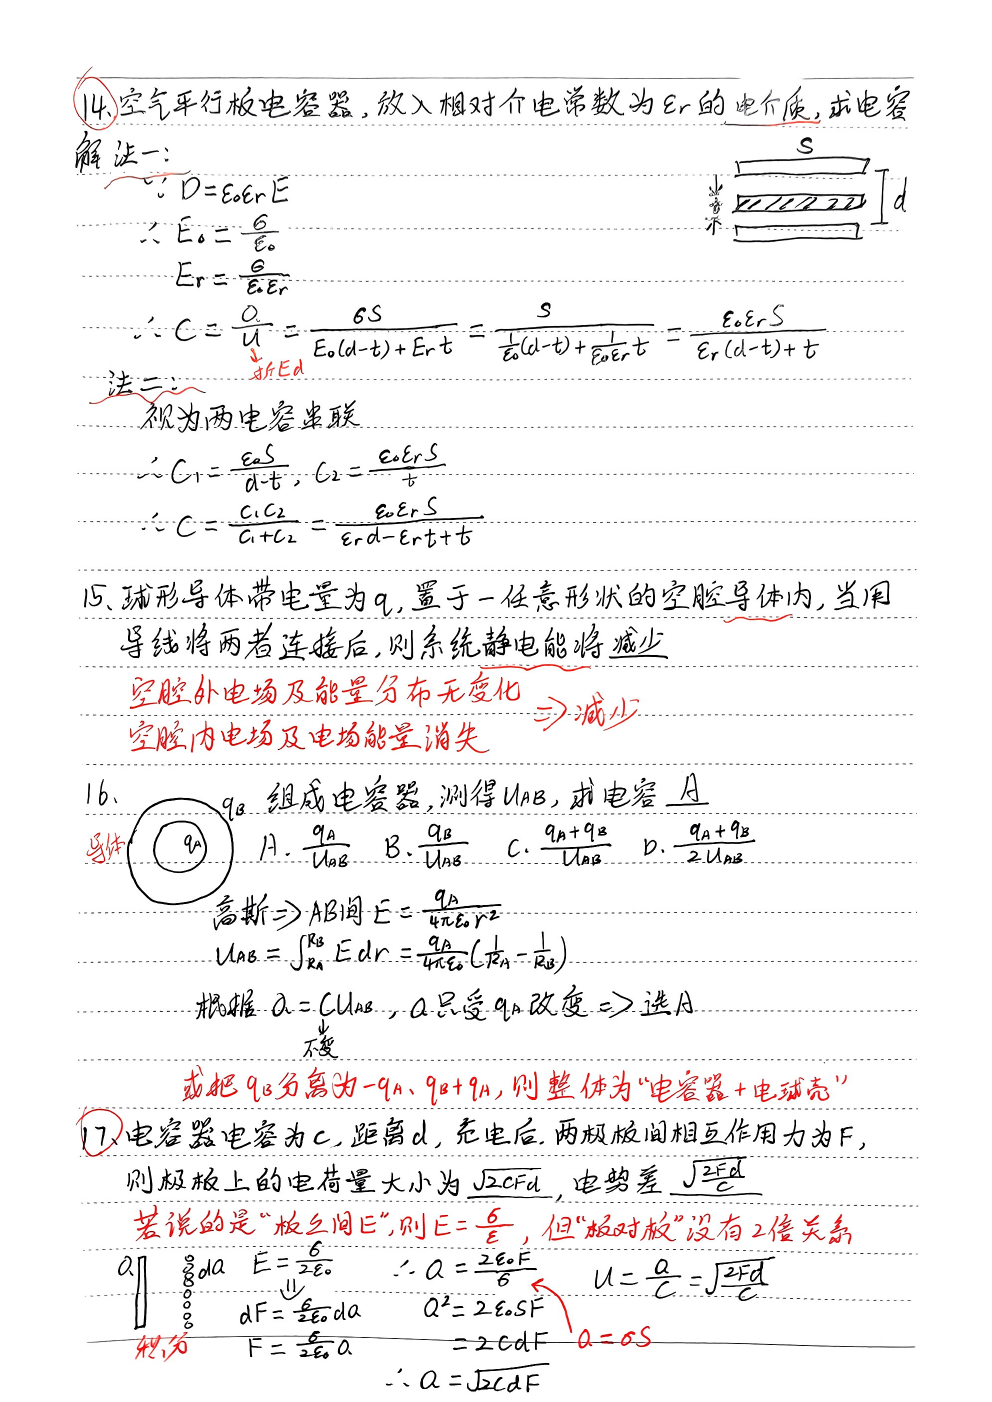 14、空气平行板电容器,放入相对介电常数为εr的电介质,求电容
解 法一:
S
d
∵ D=ε₀εrE
∴ E₀=σ/ε₀
Er=σ/ε₀εr
∴ C=Q/U=σS/(E₀(d-t)+Er t)=S/(1/ε₀(d-t)+1/ε₀εr t)=ε₀εrS/(εr(d-t)+t)
拆Ed
法二:
视为两电容串联
∴ C₁=ε₀S/(d-t), C₂=ε₀εrS/t
∴ C=C₁C₂/(C₁+C₂)=ε₀εrS/(εrd-εrt+t)
15、球形导体带电量为q,置于一任意形状的空腔导体内,当用
导线将两者连接后,则系统静电能将减少
空腔外电场及能量分布无变化
空腔内电场及电场能量消失
⇒减少
16、
qB 组成电容器,测得UAB,求电容 A
导体 qA
A. qA/UAB B. qB/UAB C. (qA+qB)/UAB D. (qA+qB)/2UAB
高斯⇒AB间E=qA/4πε₀r²
UAB=∫RA RB Edr=qA/4πε₀(1/RA-1/RB)
根据Q=CUAB,Q只受qA改变⇒选A
↓
不变
或把qB分离为-qA、qB+qA,则整体为“电容器+电球壳”
17、电容器电容为C,距离d,充电后.两极板间相互作用力为F,
则极板上的电荷量大小为√2CFd,电势差√(2Fd/C)
若说的是“板之间E”,则E=σ/ε,但“板对板”没有2倍关系
Q dQ E=σ/2ε₀ ∴ Q=2ε₀F/σ U=Q/C=√(2Fd/C)
⇓
dF=σ/2ε₀ dQ Q²=2ε₀SF
积分 F=σ/2ε₀ Q =2CdF Q=σS
∴ Q=√2CdF